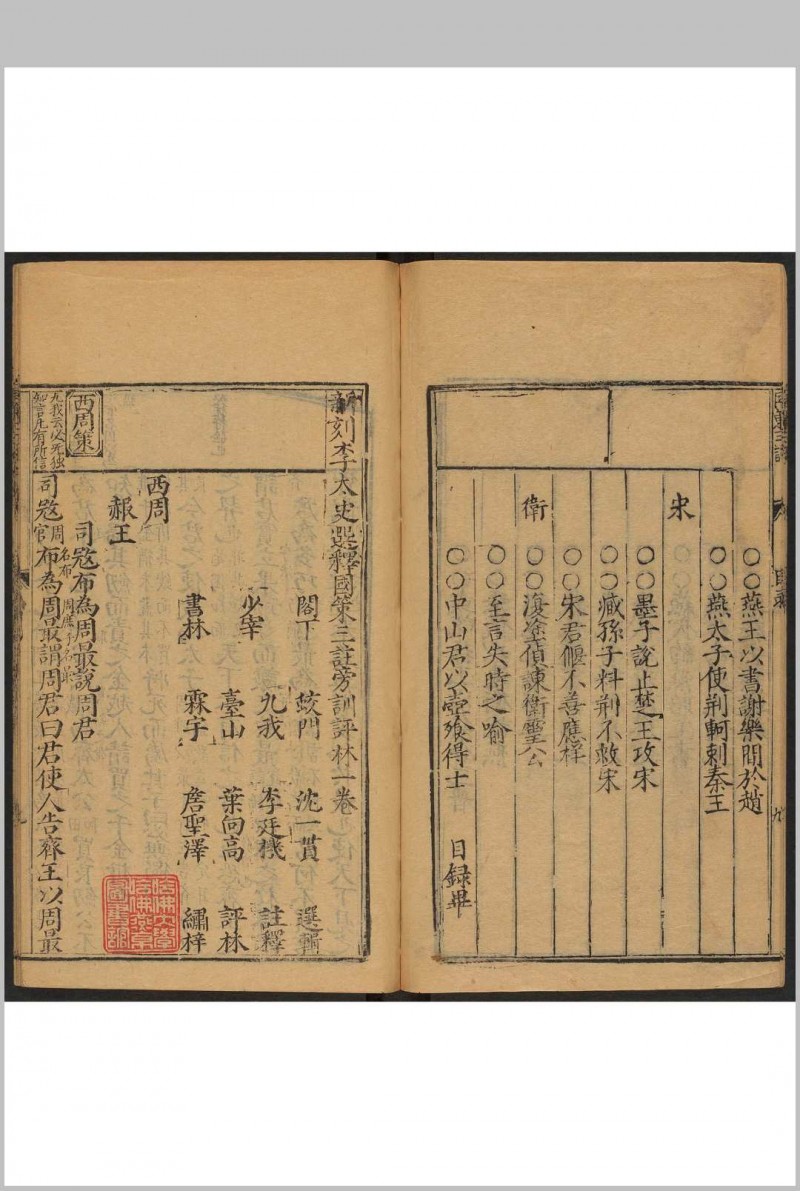 目錄
九
○○燕王以書謝樂間於趙
○○燕太子使荆軻刺秦王
宋
○○墨子說止楚王攻宋
○○臧孫子料荆不救宋
○○宋君偃不善應祥
衛
○○復塗偵諫衛靈公
○○至言失時之喻
○○中山君以壺飱得士
目録畢
新刻李太史選釋國策三註旁訓評林一卷
閣下 蛟門 沈一貫 選輯
九我 李廷機 註釋
少宰 臺山 葉向高 評林
書林 霖宇 詹聖澤 繡梓
西周
赧王
司宼布為周最說周君
西周策
司宼布為周最謂周君曰君使人告齊王以周最
周官
名布
哈佛大學
哈佛燕京
圖書館